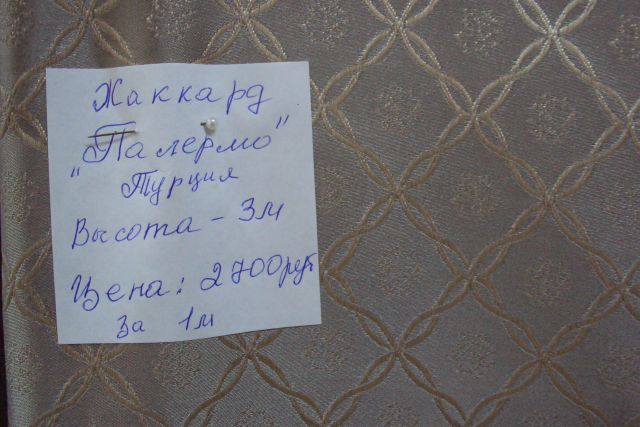 Жаккард
"Палермо"
Турция
Высота - 3м
Цена: 2700руб
За 1м